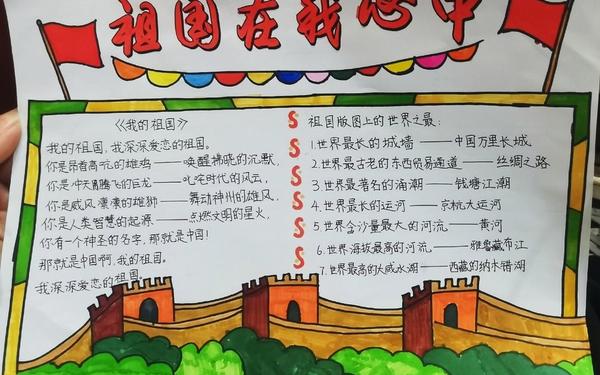 祖国在我心中
《我的祖国》
我的祖国,我深深爱恋的祖国。
你是昂首高亢的雄鸡——唤醒拂晓的沉默,
你是冲天腾飞的巨龙——叱咤时代的风云,
你是威风凛凛的雄狮——舞动神州的雄风,
你是人类智慧的起源——点燃文明的星火,
你有一个神圣的名字,那就是中国!
那就是中国啊,我的祖国。
我深深爱恋的祖国。
祖国版图上的世界之最:
1.世界最长的城墙——中国万里长城
2.世界最古老的东西贸易通道——丝绸之路
3.世界最著名的海潮——钱塘江潮
4.世界最长的运河——京杭大运河
5.世界含沙量最大的河流——黄河
6.世界海拔最高的河流——雅鲁藏布江
7.世界最高的大咸水湖——西藏的纳木错湖